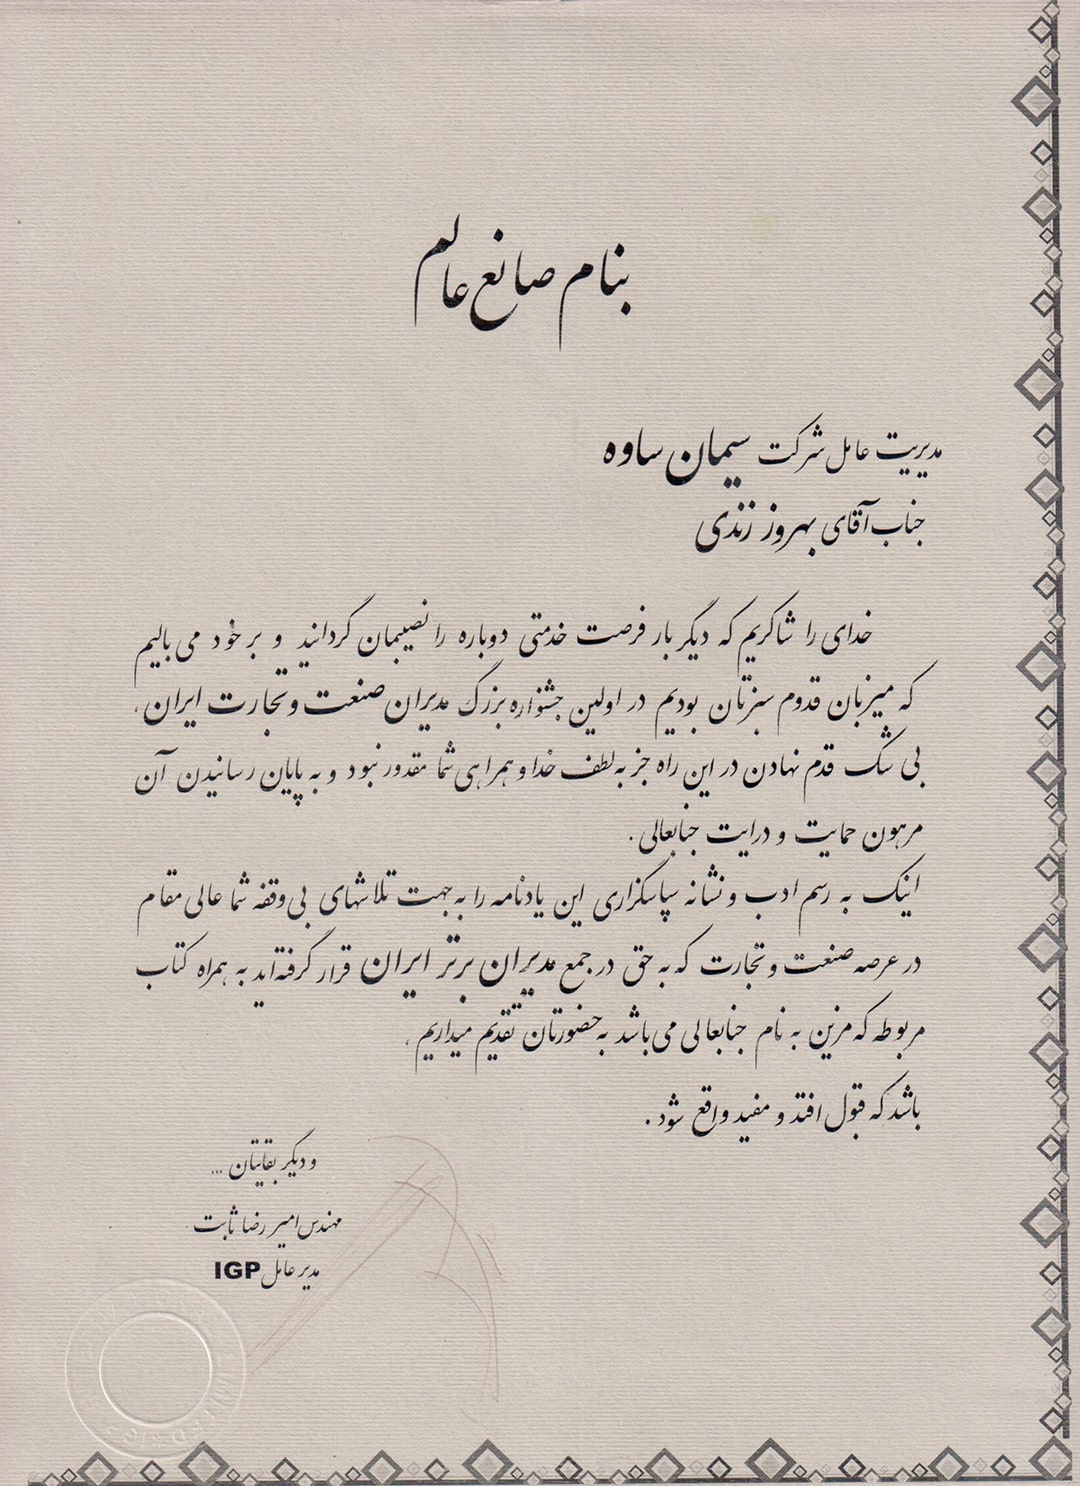 بنام صانع عالم
مدیریت عامل شرکت سیمان ساوه
جناب آقای بهروز زندی
خدای را شاکریم که دیگر بار فرصت خدمتی دوباره را نصیبمان گردانید و بر خود می بالیم
که میزبان قدوم سبزتان بودیم در اولین جشنواره بزرگ مدیران صنعت و تجارت ایران،
بی شک قدم نهادن در این راه جز به لطف خدا و همراهی شما مقدور نبود و به پایان رسانیدن آن
مرهون حمایت و درایت جنابعالی.
اینک به رسم ادب و نشانه سپاسگزاری این یادنامه را به جهت تلاشهای بی وقفه شما عالی مقام
در عرصه صنعت و تجارت که به حق در جمع مدیران برتر ایران قرار گرفته اید به همراه کتاب
مربوطه که مزین به نام جنابعالی می باشد به حضورتان تقدیم میداریم،
باشد که قبول افتد و مفید واقع شود.
و دیگر بقایتان ...
مهندس امیر رضا ثابت
مدیر عامل IGP